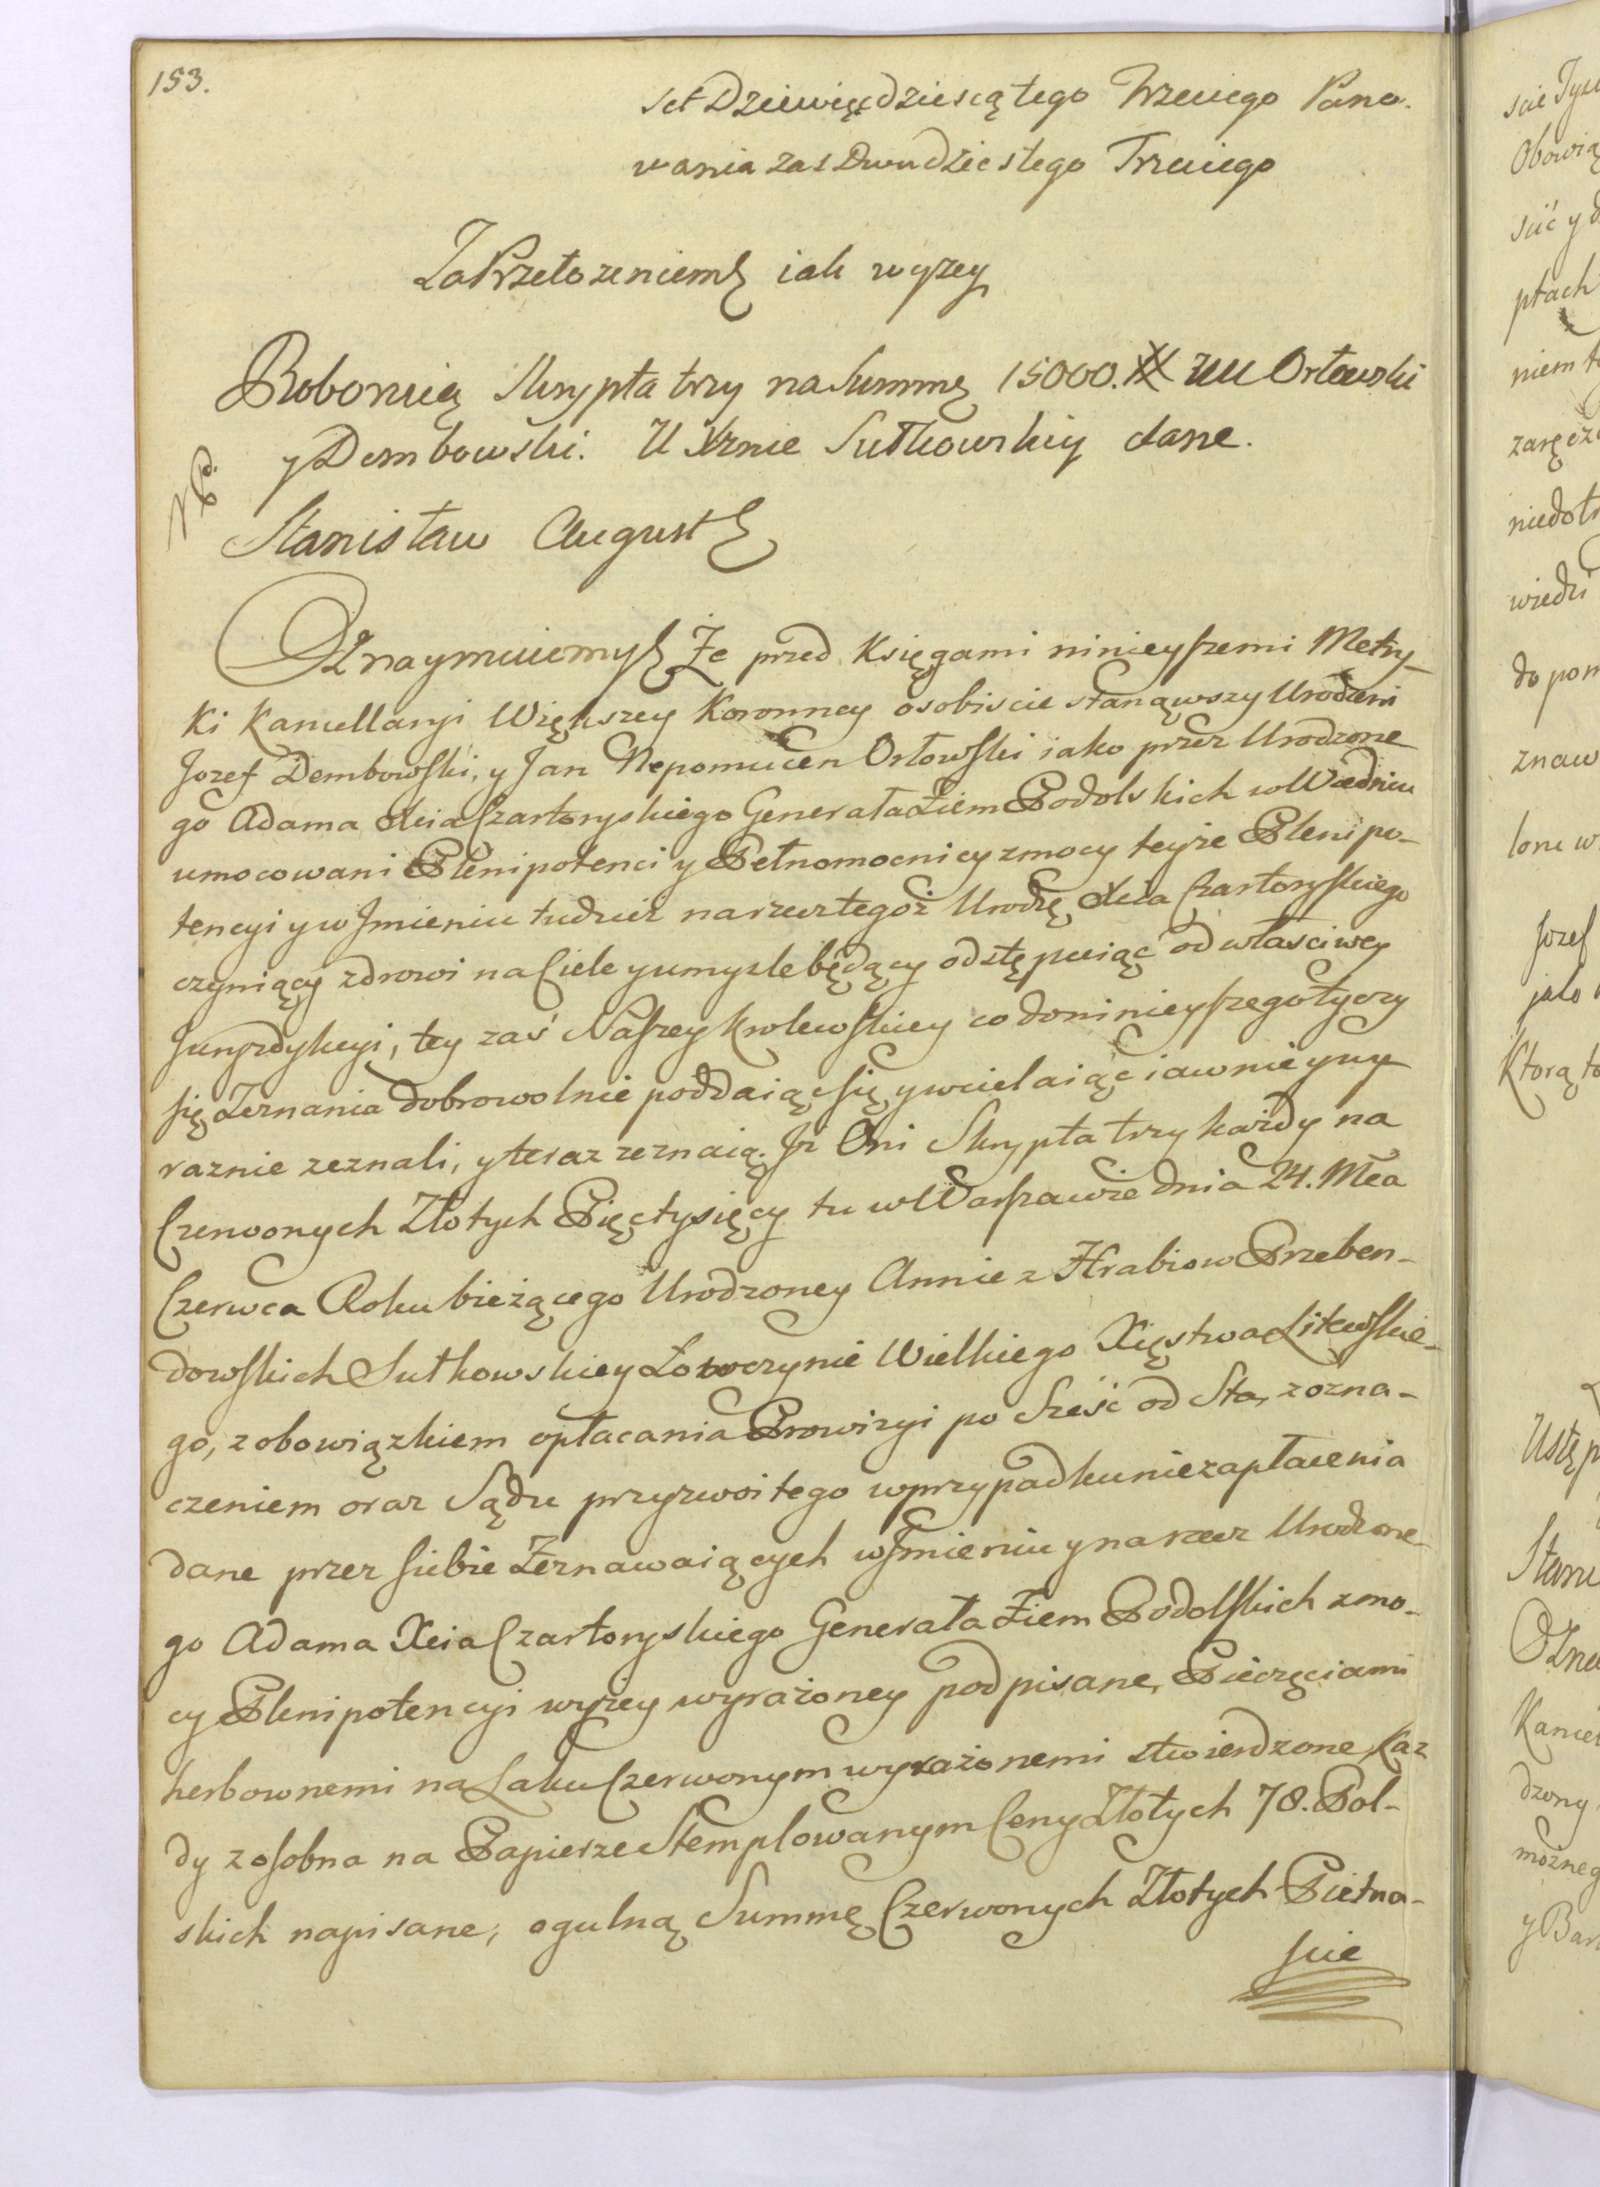 153.
set Dziewięćdziesiątego Trzeciego Pano-
wania zas Dwudziestego Trzeciego
Za Przełożeniem iak wyzey
Roboruią Skrypta trzy na Summę 15000. UU Orłowski
y Dembowski. U Xżnie Sułkowskiy dane.
Stanisław August
Oznaymuiemy Że przed Księgami ninieyszemi Metry-
ki Kancellaryi Większey Koronney osobiscie stanąwszy Urodzeni
Jozef Dembowski, y Jan Nepomucen Orłowski iako przez Urodzone
go Adama Xcia Czartoryskiego Generała Ziem Podolskich w Wiedniu
umocowani Plenipotenci y Pełnomocnicy z mocy teyże Plenipo-
tencyi y w Jmieniu tudzież na rzecz tegoż Urodzę Xcia Czartoryskiego
czyniący zdrowi na Ciele y umysle będący odstępuiąc od własciwey
Juryzdykcyi, tey zaś Naszey Krolewskiey co do ninieyszego tyczy
się Zeznania dobrowolnie poddaiąc się y wcielaiąc iawnie y wy
raznie zeznali, y teraz zeznaią. Jż Oni Skrypta trzy każdy na
Czerwonych Złotych Pięć tysięcy tu w Warszawie dnia 24. Mca
Czerwca Roku bieżącego Urodzoney Annie z Hrabiow Przeben-
dowskich Sułkowskiey Łowczynie Wielkiego Xięstwa Litewskie-
go, z obowiązkiem opłacania Prowizyi po Sześć od Sta, z ozna-
czeniem oraz Sądu przyzwoitego w przypadku niezapłacenia
dane przez siebie Zeznawaiących w Jmieniu y na rzecz Urodzone-
go Adama Xcia Czartoryskiego Generała Ziem Podolskich z mo-
cy Plenipotencyi wyżey wyrażoney podpisane, Pieczęciami
herbownemi na Laku Czerwonym wyrażonemi stwierdzone, Kaz
dy z osobna na Papierze Stemplowanym Ceny Złotych 78. Pol-
skich napisane, ogulną Summę Czerwonych Złotych Pietna-
scie